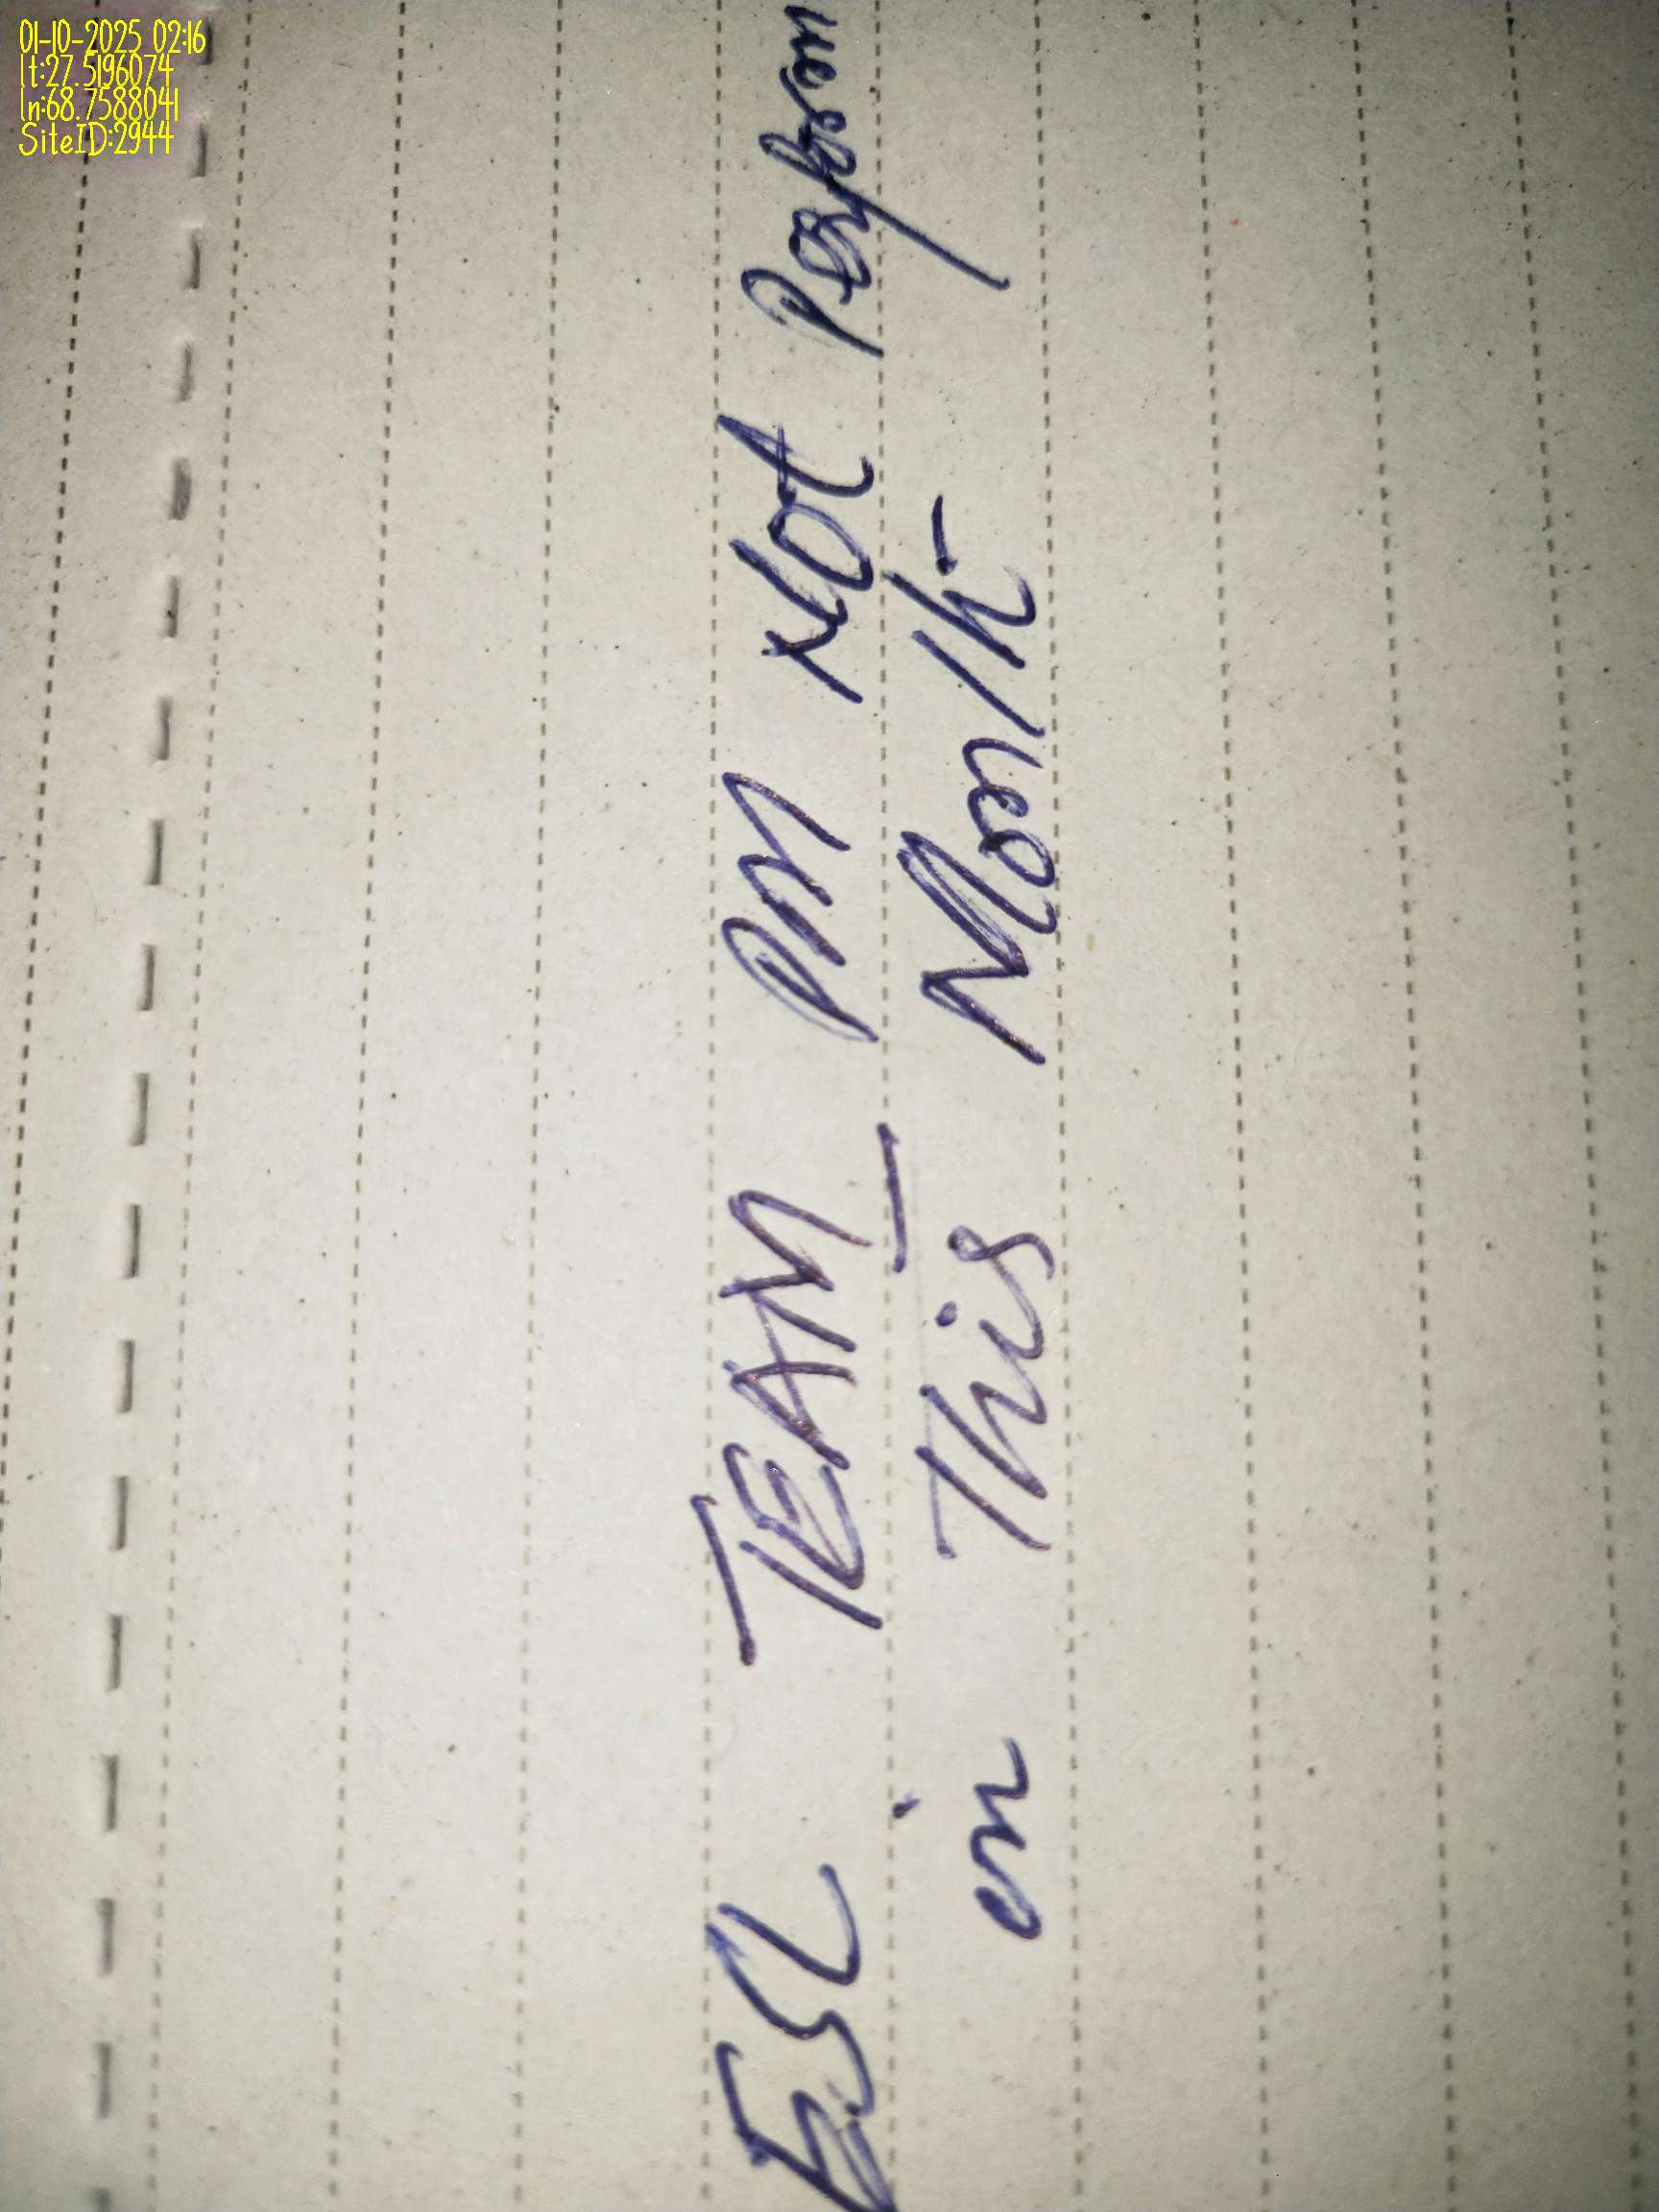 01-10-2025 02:16
lt:27.5196074
ln:68.7588041
SiteID:2944
ESL TEAM PM Not
in This Month